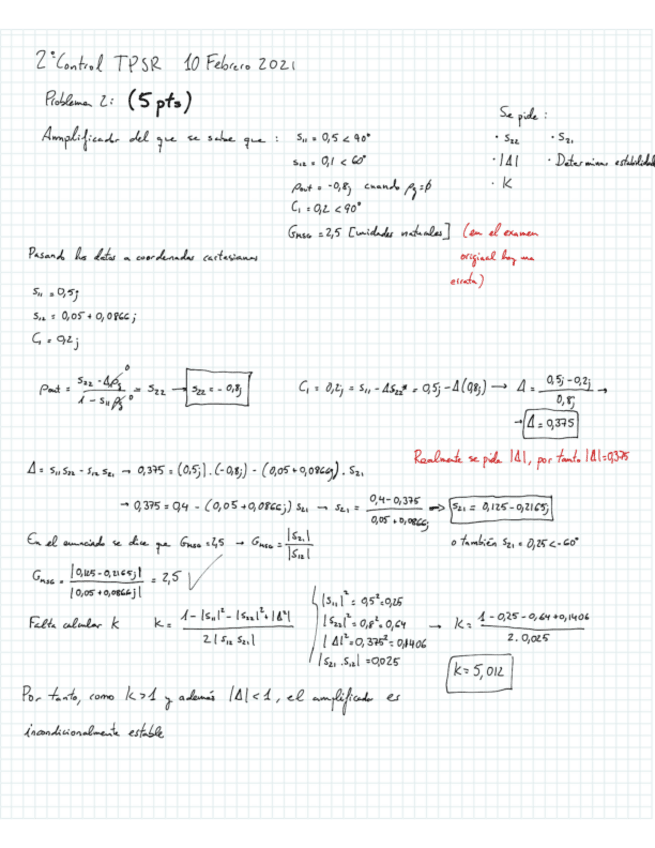 2º Control TPSR 10 Febrero 2021
Problema 2: (5 pts)
Se pide:
Ammplificador del que se sabe que : S₁₁ = 0,5 < 90° · S₂₂ · S₂₁
S₁₂ = 0,1 < 60° · |Δ| · Determinar estabilidad
ρout = -0,8j cuando ρg = ø · K
C₁ = 0,2 < 90°
GMSG = 2,5 [unidades naturales] (en el examen
original hay una
errata)
Pasando los datos a coordenadas cartesianas
S₁₁ = 0,5j
S₁₂ = 0,05 + 0,0866j
C₁ = 0,2j
ρout = (S₂₂ - Δρg⁰) / (1 - S₁₁ρg⁰) = S₂₂ → S₂₂ = -0,8j
C₁ = 0,2j = S₁₁ - ΔS₂₂* = 0,5j - Δ(0,8j) → Δ = (0,5j - 0,2j) / 0,8j →
→ Δ = 0,375
Realmente se pide |Δ|, por tanto |Δ| = 0,375
Δ = S₁₁S₂₂ - S₁₂S₂₁ → 0,375 = (0,5j).(-0,8j) - (0,05 + 0,0866j).S₂₁
→ 0,375 = 0,4 - (0,05 + 0,0866j) S₂₁ → S₂₁ = (0,4 - 0,375) / (0,05 + 0,0866j) => S₂₁ = 0,125 - 0,2165j
En el enunciado se dice que GMSG = 2,5 → GMSG = |S₂₁| / |S₁₂|
o también S₂₁ = 0,25 < -60°
GMSG = |0,125 - 0,2165j| / |0,05 + 0,0866j| = 2,5 √
Falta calcular K K = (1 - |S₁₁|² - |S₂₂|² + |Δ²|) / (2|S₁₂ S₂₁|)
|S₁₁|² = 0,5² = 0,25
|S₂₂|² = 0,8² = 0,64
|Δ|² = 0,375² = 0,1406
|S₂₁ . S₁₂| = 0,025
→ K = (1 - 0,25 - 0,64 + 0,1406) / (2 . 0,025)
K = 5,012
Por tanto, como K > 1 y además |Δ| < 1, el amplificador es
incondicionalmente estable